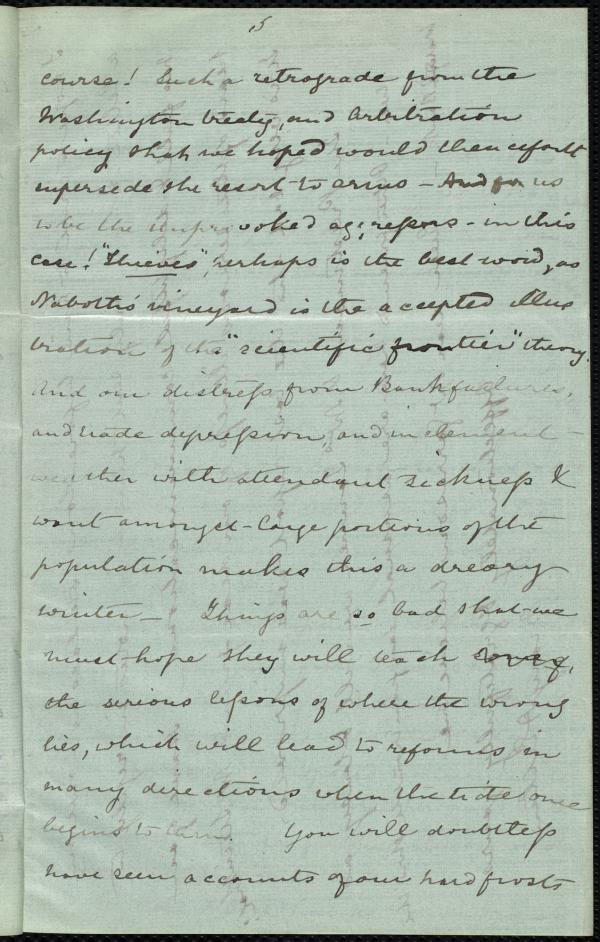 5
course! Such a retrograde from the
Washington treaty, and arbitration
policy that we hoped would thenceforth
supersede the resort to arms – And for us
to be the unprovoked aggressors – in this
case! "Thieves", perhaps is the best word, as
Naboth's vineyard is the accepted illus
tration of the "scientific frontier" theory.
And our distress from Bank failures,
and trade depression, and inclement
weather with attendant sickness &
want amongst large portions of the
population makes this a dreary
winter – Things are so bad that we
must hope they will teach
the serious lessons of where the wrong
lies, which will lead to reforms in
many directions when the tide once
begins to turn. You will doubtless
have seen accounts of our hard frosts